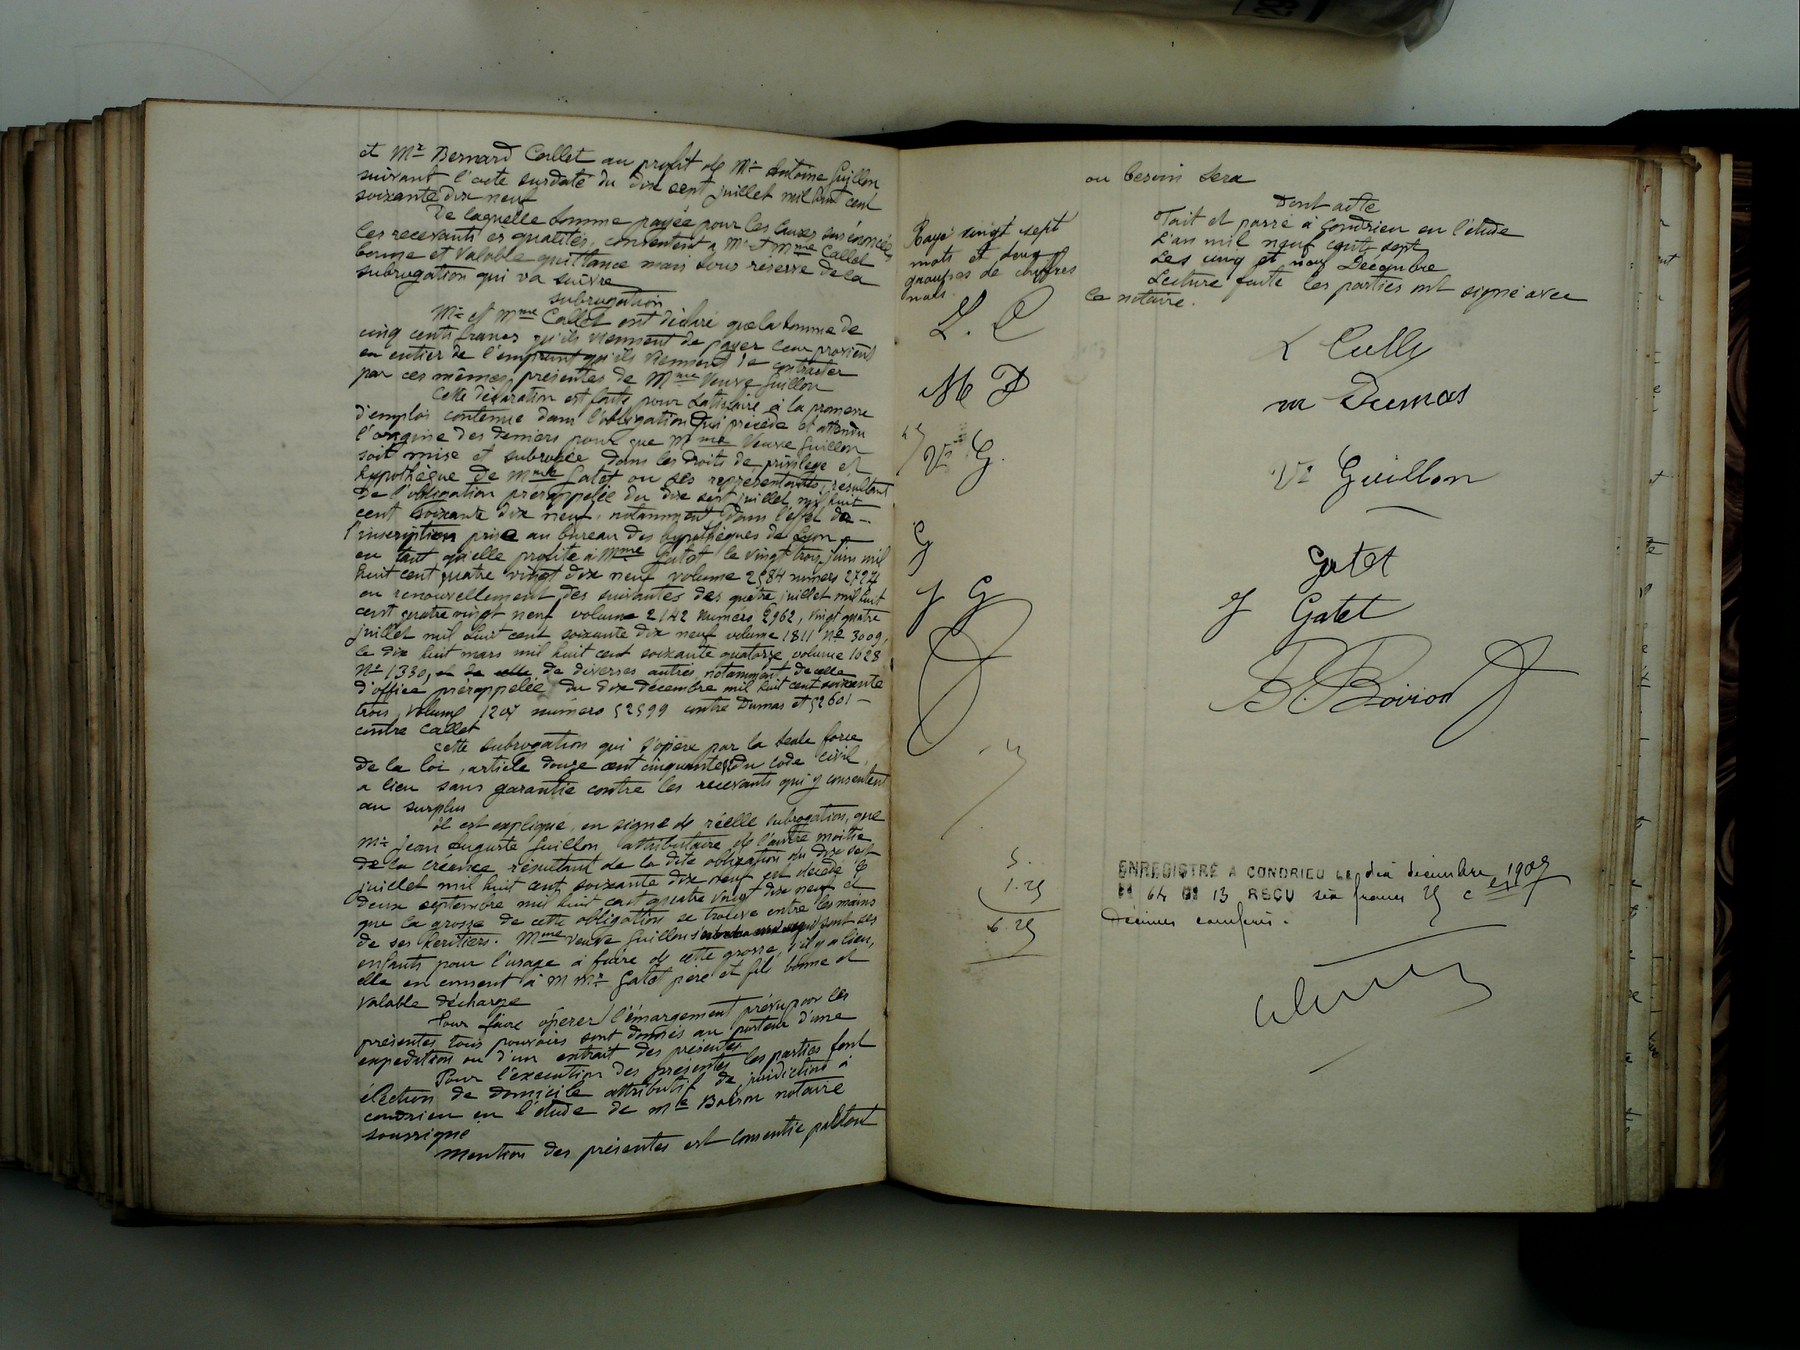 et Mr Bernard Callet au profit de Mr Antoine Guillon
suivant l'acte susdaté du dix sept juillet mil huit cent
soixante dix neuf
De laquelle somme payée pour les causes sus énoncées
les recevants es qualités, consentent à Mr et Mme Callet
bonne et valable quittance mais sous réserve de la
subrogation qui va suivre
subrogation
Mr et Mme Callet ont déclaré que la somme de
cinq cents francs qu'ils viennent de payer leur provient
en entier de l'emprunt qu'ils viennent de contracter
par ces mêmes présentes de Mme Veuve Guillon
Cette déclaration est faite pour satisfaire à la promesse
d'emploi contenue dans l'obligation qui précède et attendu
l'origine des deniers pour que Mme Veuve Guillon
soit mise et subrogée dans les droits de privilège et
hypothèque de Mme Gatet ou ses représentants, résultant
de l'obligation prérappelée du dix sept juillet mil huit
cent soixante dix neuf, notamment dans l'effet de
l'inscription prise au bureau des hypothèques de Lyon
en tant qu'elle profite à Mme Gatet le vingt trois juin mil
huit cent quatre vingt dix neuf volume 2584 numéro 27274
en renouvellement des suivantes des quatre juillet mil huit
cent quatre vingt neuf volume 2142 numéro 2962, vingt quatre
juillet mil huit cent soixante dix neuf volume 1811 No 3009,
le dix huit mars mil huit cent soixante quatorze volume 1628
No 1330, de diverses autres notamment de celle
d'office prérappelée du dix décembre mil huit cent soixante
trois, volume 1207 numéro 52599 contre Dumas et 52601
contre Callet
Cette subrogation qui s'opère par la seule force
de la loi, article douze cent cinquante du code civil,
a lieu sans garantie contre les recevants qui y consentent
au surplus
Il est expliqué, en signe de réelle subrogation, que
Mr Jean Auguste Guillon, attributaire de l'autre moitié
de la créance résultant de la dite obligation du dix sept
juillet mil huit cent soixante dix neuf est décédé le
deux septembre mil huit cent quatre vingt dix neuf et
que la grosse de cette obligation se trouve entre les mains
de ses héritiers. Mme veuve Guillon sont ses
enfants pour l'usage à faire de cette grosse, s'il y a lieu,
elle en consent à M Mrs Gatet père et fils bonne et
valable décharge
Pour faire opérer l'émargement prévu par les
présentes tous pouvoirs sont donnés au porteur d'une
expédition ou d'un extrait des présentes
Pour l'exécution des présentes les parties font
élection de domicile attributif de juridiction à
Condrieu en l'étude de Me Boiron notaire
soussigné
Mention des présentes est consentie partout
Rayé vingt sept
mots et deux
groupes de chiffres
nuls.
L. C
M D
Ve G.
G
J G
5.
1.25
6.25
ou besoin sera
Dont acte
Fait et passé à Condrieu en l'étude
L'an mil neuf cent sept
Les cinq et neuf Décembre
Lecture faite les parties ont signé avec
le notaire.
L Callet
M Dumas
Ve Guillon
Gatet
J Gatet
B. Boiron
ENREGISTRÉ A CONDRIEU LE dix décembre 1907
Fo 64 Co 13 REÇU six francs 25 c es
Décimes compris.